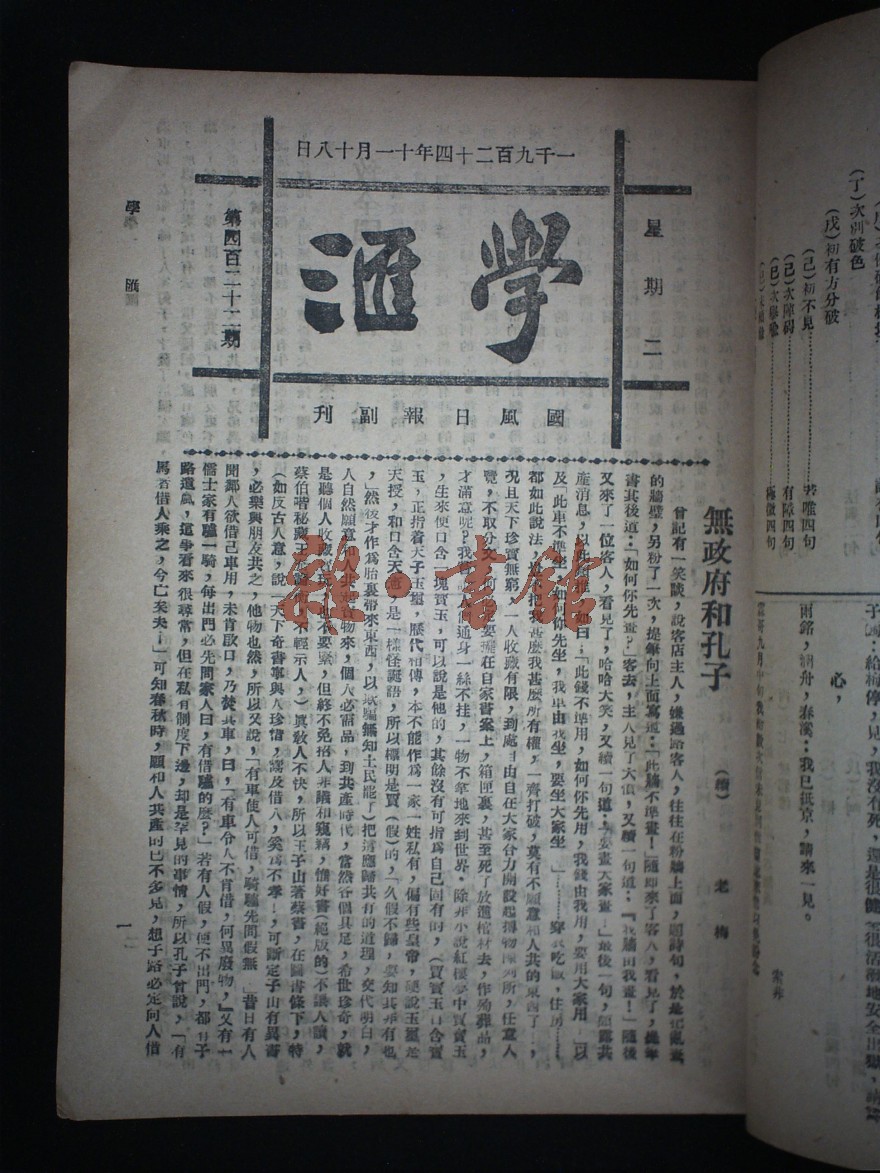 一千九百二十四年十一月十八日
星期二
學滙
第四百二十二期
國風日報副刊
無政府和孔子
（續）
老梅
曾記有一笑談，說客店主人，嫌過路客人，往往在粉牆上面，題詩句，於是把亂畫
的牆壁，另粉了一次，提筆向上面寫道：「此牆不準畫！」隨即來了客人，看見了，提筆
書其後道：「如何你先畫？」客去，主人見了大恨，又續一句道：「我牆由我畫！」隨後
又來了一位客人，看見了，哈哈大笑，又續一句道：「要畫大家畫！」最後一句，頗露共
產消息，以此類推，如曰：「此錢不準用，如何你先用，我錢由我用，要用大家用 以
及，此車不準坐，如何你先坐，我車由我坐，要坐大家坐 」………穿衣吃飯，住房……
都如此說法
況且天下珍寶無窮，一人收藏有限，到處自由自在大家合力開設起博物陳列所，任意人
覽，不取分文，
要擺在自家書案上，箱匣裏，甚至死了放進棺材去，作殉葬品，
才滿意呢？我
人通身一絲不挂，一物不拿地來到世界，除非小說紅樓夢中賈寶玉
，生來便口含一塊寶玉，可以說是他的，其餘沒有可指爲自己固有的，（賈寶玉口含寶
玉，正指着天子玉璽，歷代相傳，本不能作爲一家一姓私有，偏有些皇帝，硬說玉璽是
天授，和口含天憲，是一樣怪誕語，所以標明是賈（假）的，「久假不歸，要知其非有也
」然後才作爲胎裏帶來東西，以欺騙無知士民罷了）把這應歸共有的道理，交代明白，
人自然願意和人共起各物來，個人必需品，到共產時代，當然各個具足，希世珍奇，就
是聽個人收藏賞玩，也不要緊，但終不免招人非議和窺竊，惜好書（絕版的）不讓人讀，
蔡伯喈秘藏王
不輕示人，）眞敎人不快，所以王子山著蔡書，在圖書條下，特
（如反古人意，說「天下奇書寧與人珍惜，謀及借人，奚爲不孝！」可斷定子山有異書
，必樂與朋友共之，他物也然，所以又說，「有車使人可借，騎驢先問假無」昔日有人
聞鄰人欲借己車用，未肯啟口，乃焚其車，曰，「有車令人不肯借，何異廢物，」又有一
儒士家有驢一騎，每出門必先問家人曰，有借驢的麽？」若有人假，便不出門，都有子
路遺風，這事看來很尋常，但在私有制度下邊，却是罕見的事情，所以孔子曾說，「有
馬者借人乘之，今亡矣夫！」可知春秋時，願和人共產的已不多見，想子路必定向人借
學 滙
一
（丁）次別破色
（戊）初有方分破
（己）初不見
（己）次障碍
有障四句
心，
我已抵京，請來一見。
毅·書館